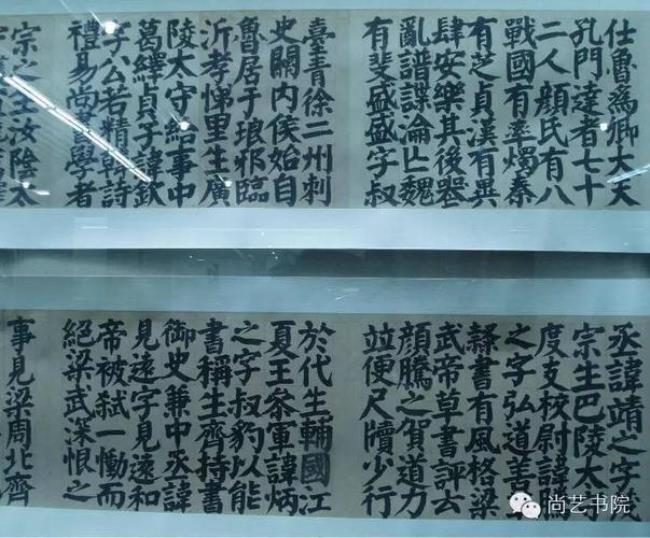 仕魯爲卿大夫
孔門達者七十
二人顏氏有八
戰國有率燭秦
有芝貞漢有異
肆安樂其後喪
亂譜諜淪亡魏
有斐盛盛字叔
臺青徐二州刺
史關内侯始自
魯居于琅邪臨
沂孝悌里生廣
陵太守給事中
葛繹貞子諱欽
字公若精韓詩
禮易尚書學者
宗之生汝陰太
丞諱靖之字茂
宗生巴陵太守
度支校尉諱騰
之字弘道善草
隸書有風格梁
武帝草書評云
顏騰之賀道力
並便尺牘少行
於代生輔國江
夏王叅軍諱炳
之字叔豹以能
書稱生齊持書
御史兼中丞諱
見遠字見遠和
帝被弒一慟而
絕梁武深恨之
事見梁周北齊
尚艺书院